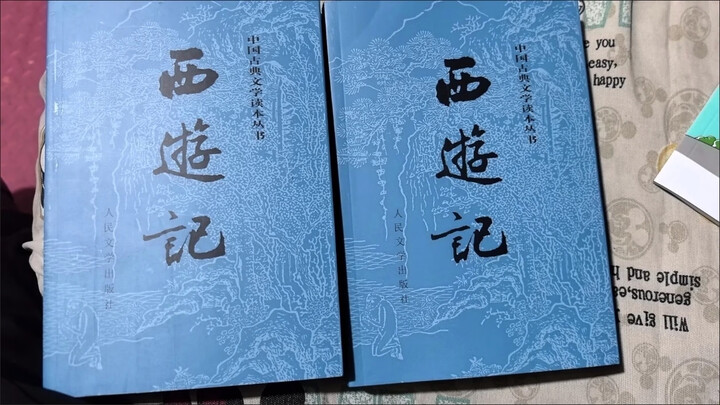 中国古典文学读本丛书
西遊記
人民文学出版社
中国古典文学读本丛书
西遊記
人民文学出版社
you
easy,
happy
Will give
generous,ea
simple and h